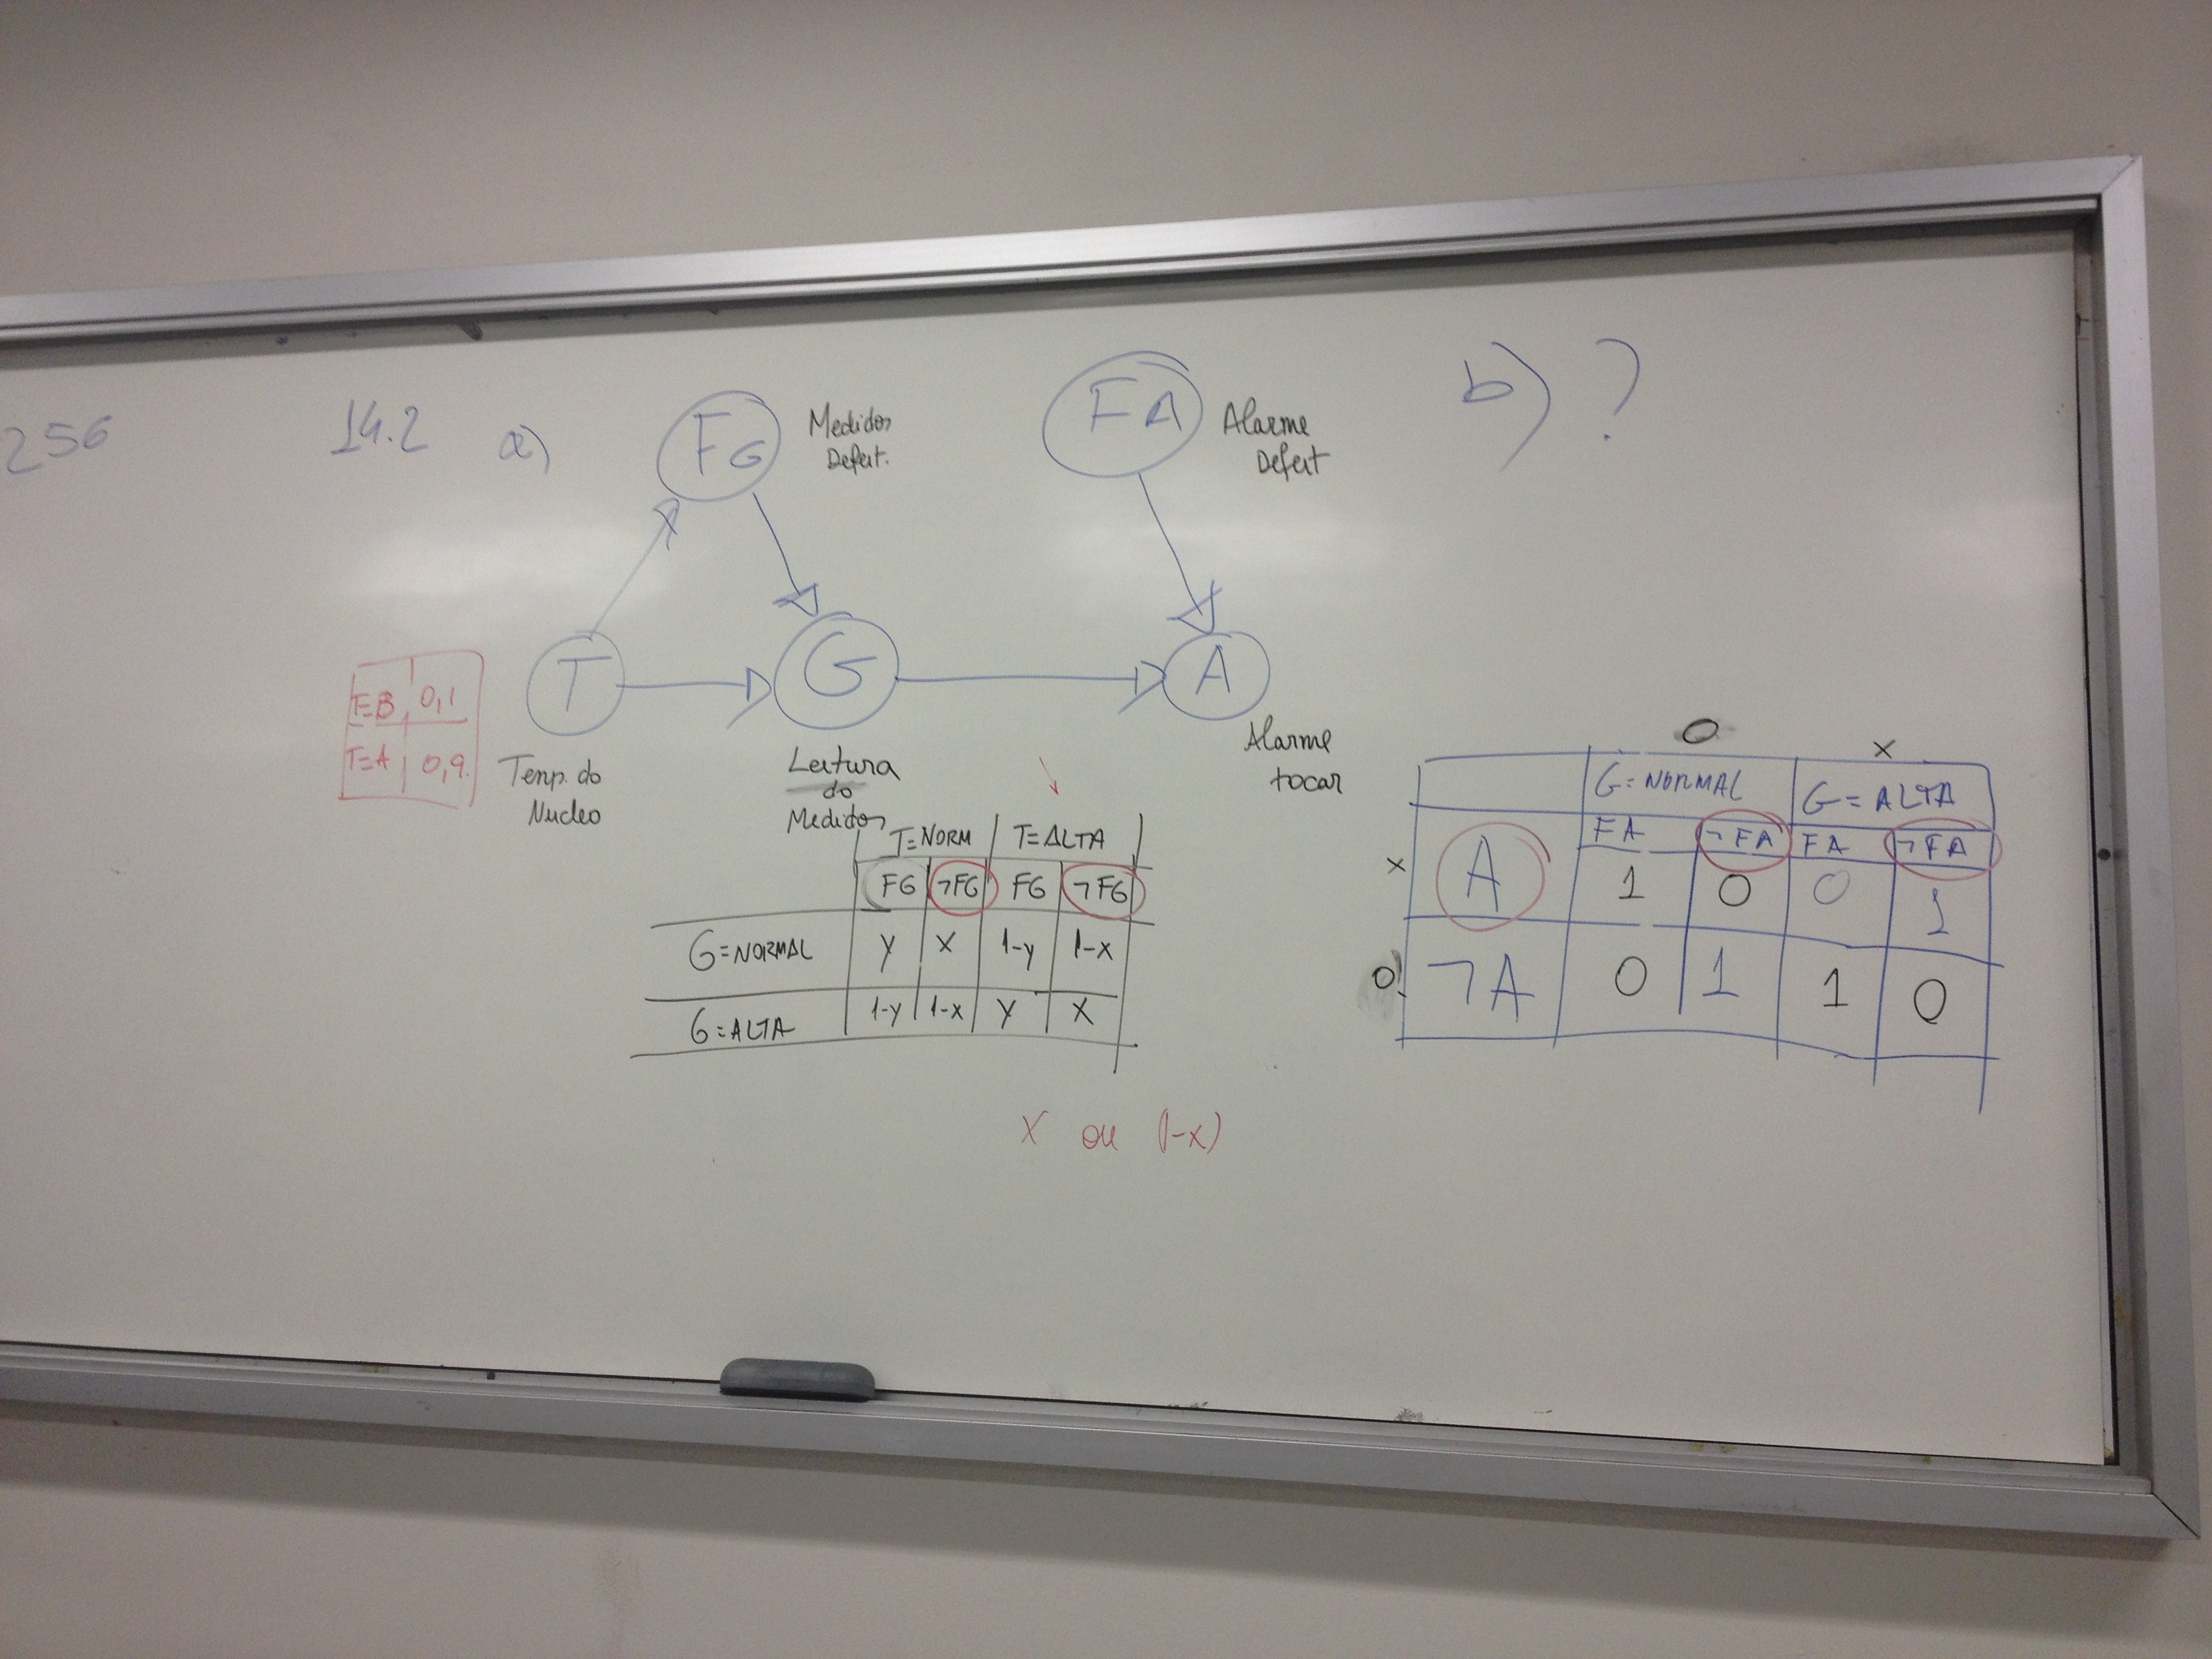 256
14.2 a)
FG
Medidor
Defeit.
FA
Alarme
Defeit
b) ?
T=B 0,1
T=A 0,9.
T
Temp. do
Nucleo
G
Leitura
do
Medidor
A
Alarme
tocar
T=NORM T=ALTA
FG ¬FG FG ¬FG
G=NORMAL y x 1-y 1-x
G=ALTA 1-y 1-x y x
x ou (1-x)
0 x
G=NORMAL G=ALTA
FA ¬FA FA ¬FA
x A 1 0 0 1
0 ¬A 0 1 1 0